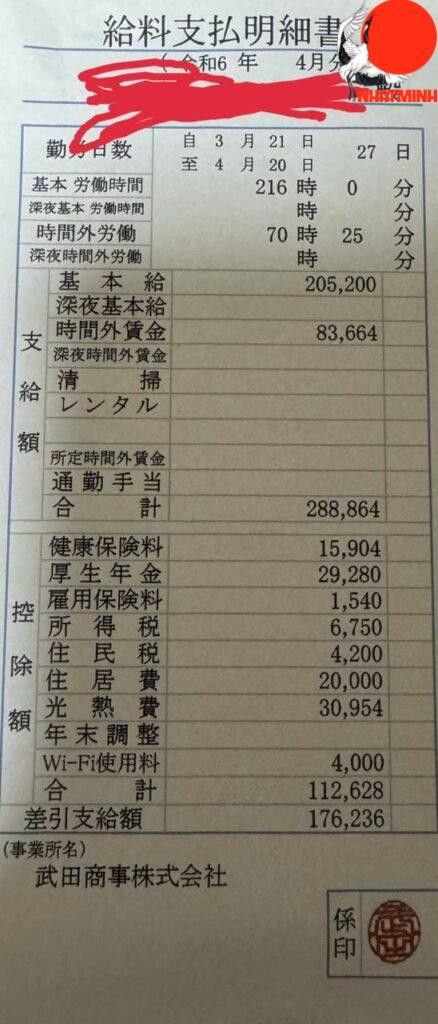 給料支払明細書
令和6 年 4月分
NHATMINH
勤労日数 自 3 月 21 日 至 4 月 20 日 27 日
基本 労働時間 216 時 0 分
深夜基本 労働時間 時 分
時間外労働 70 時 25 分
深夜時間外労働 時 分
支給額
基本給 205,200
深夜基本給
時間外賃金 83,664
深夜時間外賃金
清掃
レンタル
所定時間外賃金
通勤手当
合計 288,864
控除額
健康保険料 15,904
厚生年金 29,280
雇用保険料 1,540
所得税 6,750
住民税 4,200
住居費 20,000
光熱費 30,954
年末調整
Wi-Fi使用料 4,000
合計 112,628
差引支給額 176,236
(事業所名)
武田商事株式会社
係印